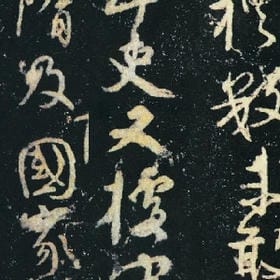 數未敢
史又據
隋及國家